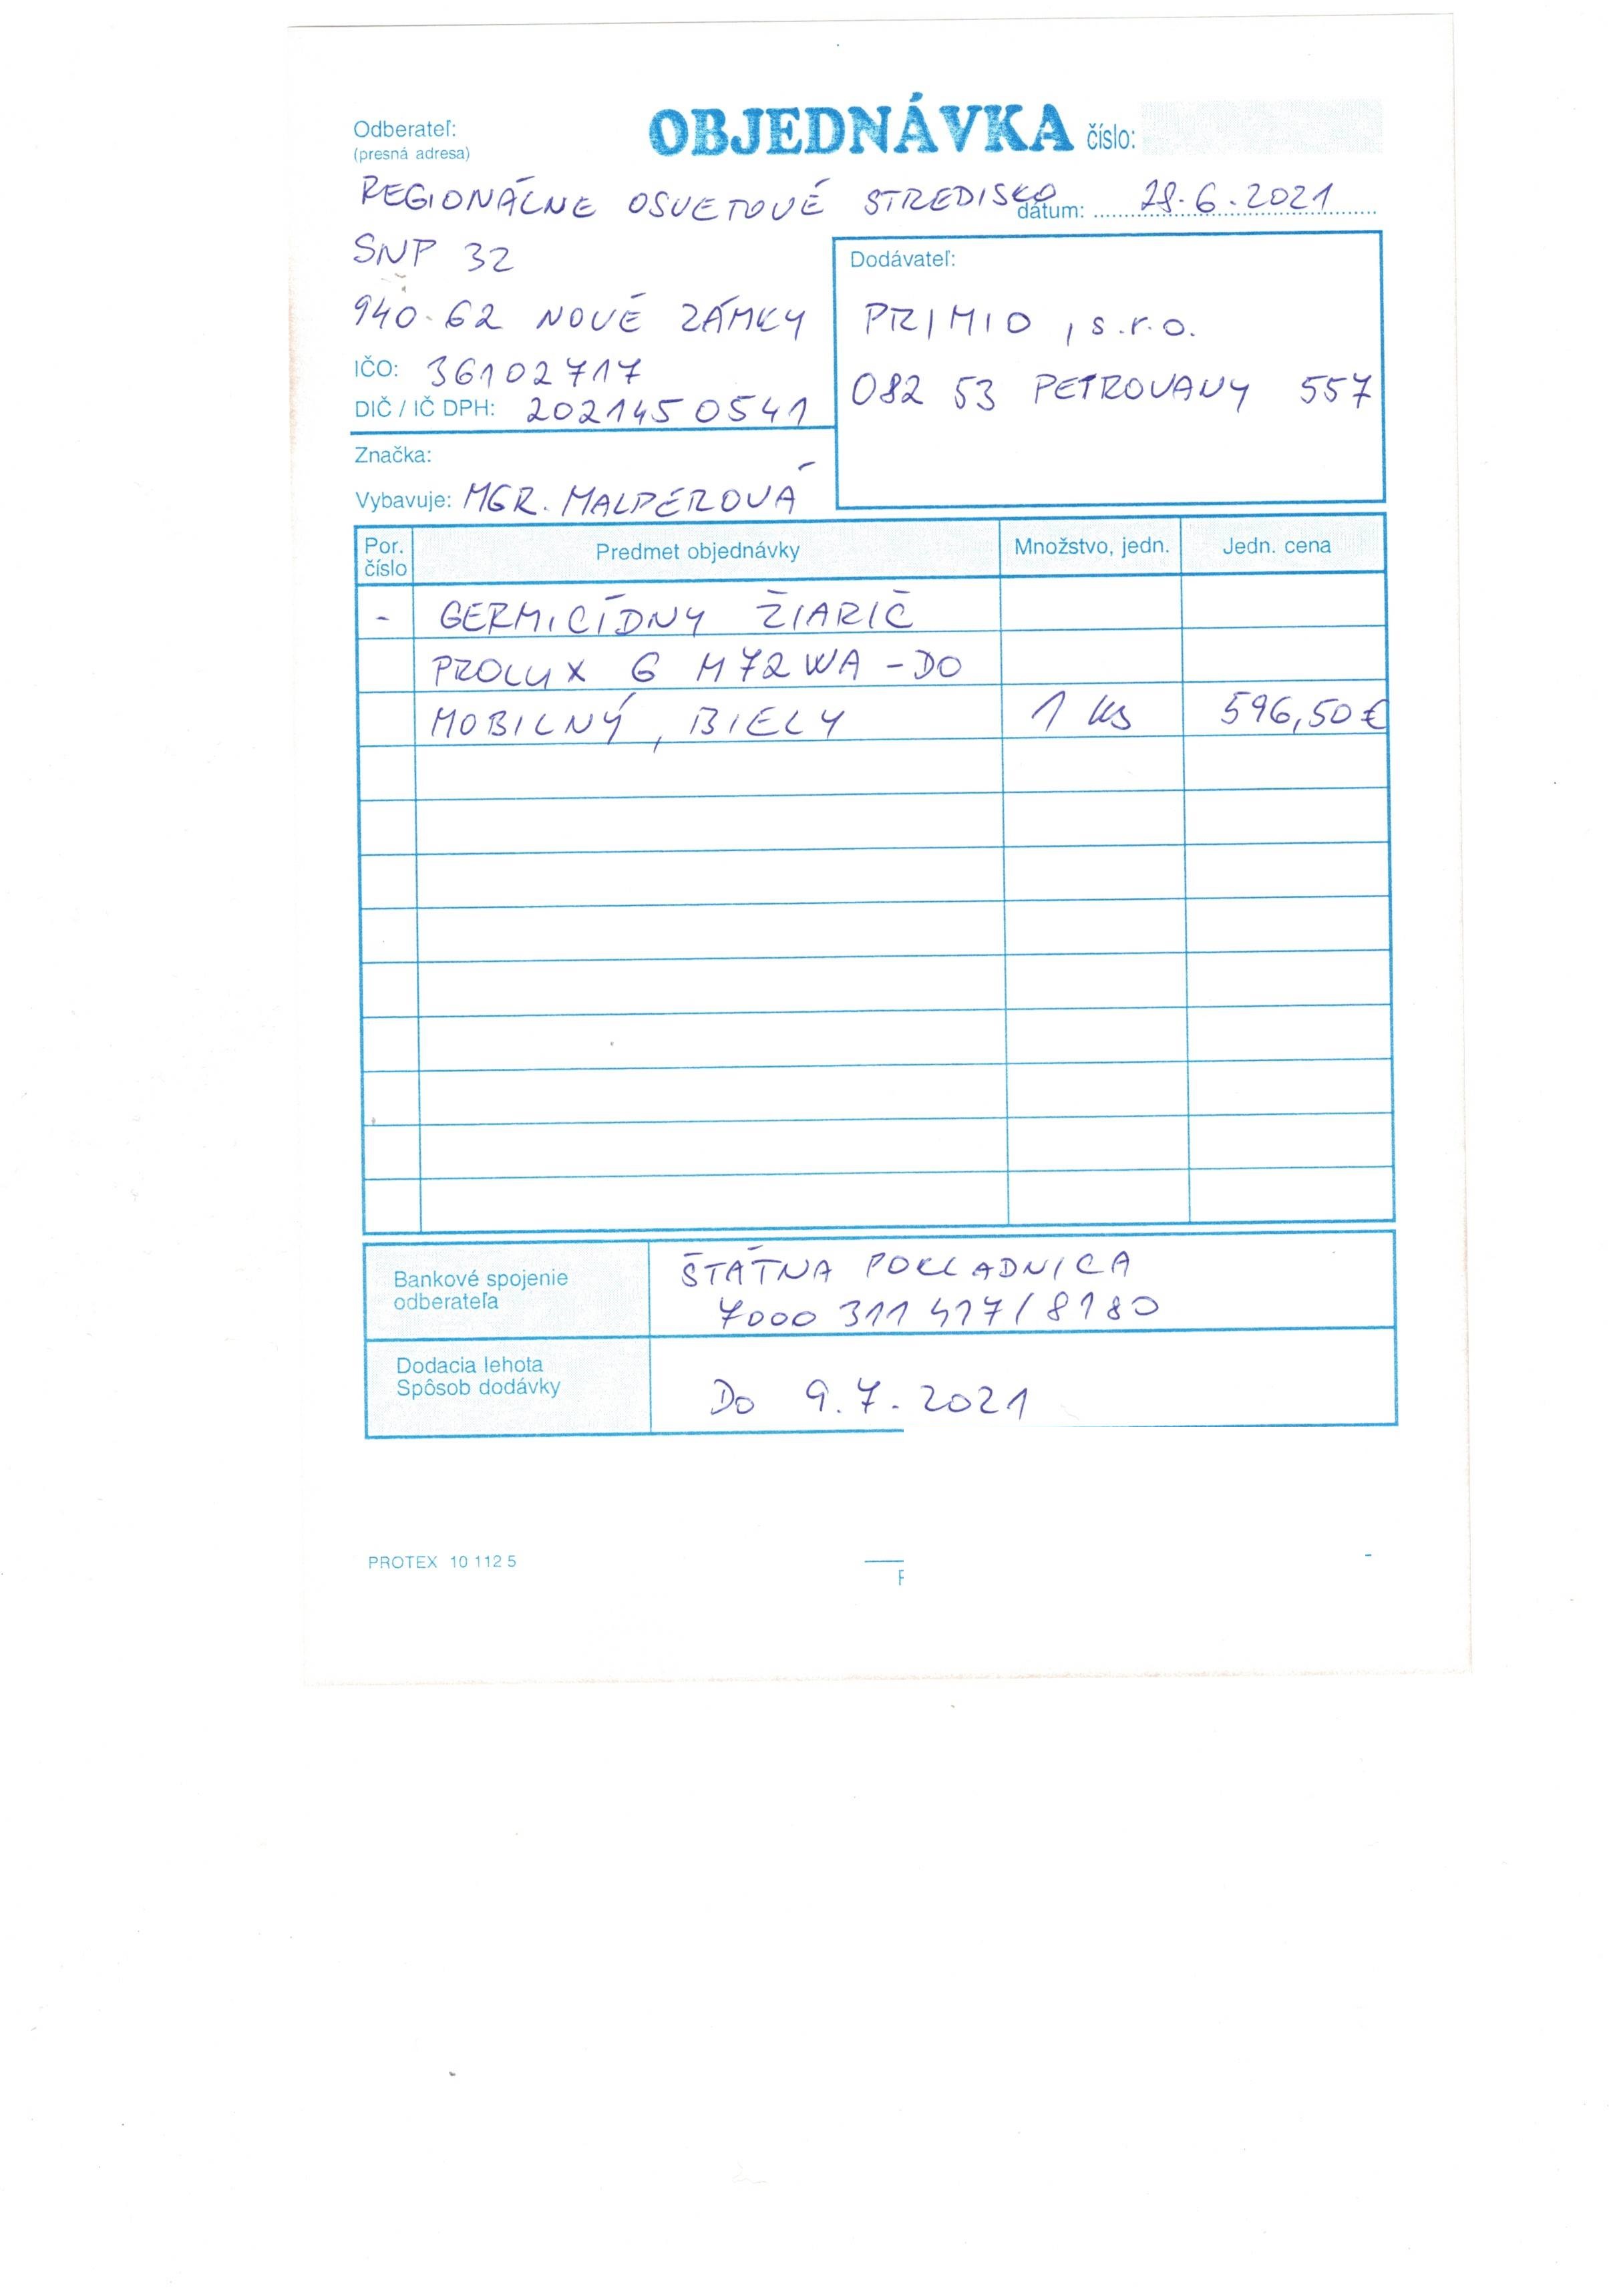 Odberateľ:
(presná adresa)
OBJEDNÁVKA číslo:
REGIONÁLNE OSVETOVÉ STREDISKO
dátum: 28.6.2021
SNP 32
940 62 NOVÉ ZÁMKY
IČO: 36102717
DIČ / IČ DPH: 2021450541
Značka:
Vybavuje: MGR. MALPEROVÁ
Dodávateľ:
PRIMIO, s.r.o.
082 53 PETROVANY 557
Por. číslo Predmet objednávky Množstvo, jedn. Jedn. cena
- GERMICÍDNY ŽIARIČ
PROLUX G M72WA-DO
MOBILNÝ, BIELY 1 ks 596,50€
Bankové spojenie
odberateľa
ŠTÁTNA POKLADNICA
7000 311 417/8180
Dodacia lehota
Spôsob dodávky
DO 9.7.2021
PROTEX 10 112 5